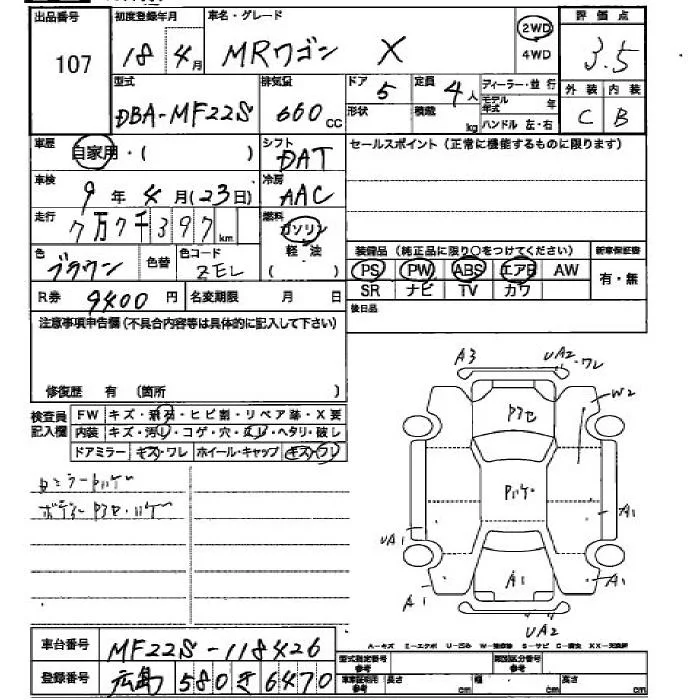 出品番号 107
初度登録年月 18年4月
車名・グレード MRワゴン X
2WD 4WD
評価点 3.5
外装 C 内装 B
型式 DBA-MF22S
排気量 660 CC
ドア 5
形状
定員 4人
積載 kg
ディーラー・並行
モデル年式 年
ハンドル 左・右
車歴 自家用・( )
シフト DAT
車検 9年4月(23日)
冷房 AAC
走行 7万7千397km
燃料 ガソリン 軽油 ( )
色 ブラウン 色替 色コード ZEL
R券 9400円 名変期限 月 日
セールスポイント(正常に機能するものに限ります)
装備品(純正品に限り○をつけてください) 新車保証書
PS PW ABS エアB AW 有・無
SR ナビ TV カワ
後日品
注意事項申告欄(不具合内容等は具体的に記入して下さい)
修復歴 有 (箇所 )
検査員記入欄
FW キズ・飛石・ヒビ割・リペア跡・X要
内装 キズ・汚レ・コゲ・穴・スレ・ヘタリ・破レ
ドアミラー キズ・ワレ ホイール・キャップ キズ・ワレ
ボディー
A3 UA2・ワレ
W2
UA1 A1
A1 A1 A1
UA2
A-キズ E-エクボ U-凹み S-サビ
車台番号 MF22S-118426
登録番号 広島 580 き 6470
型式指定番号 参考 類別区分番号 参考
車検証明用 参考 長さ cm 幅 cm 高さ cm